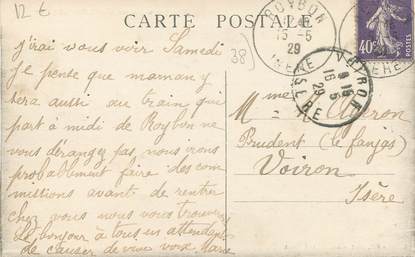 12 €
CARTE POSTALE
38)
ROYBON
15-5
29
ISERE
VOIRON
16
5
29
ISERE
40c
J'irai vous voir Samedi
je pense que maman y
sera aussi au train qui
part à midi de Roybon ne
vous dérangez pas nous irons
probablement faire des com
missions avant de rentrer
chez vous nous vous trouverons
Le bonjour à tous en attendant
de causer de vive voix
Mme
Prudent (le fanjas)
Voiron
Isère